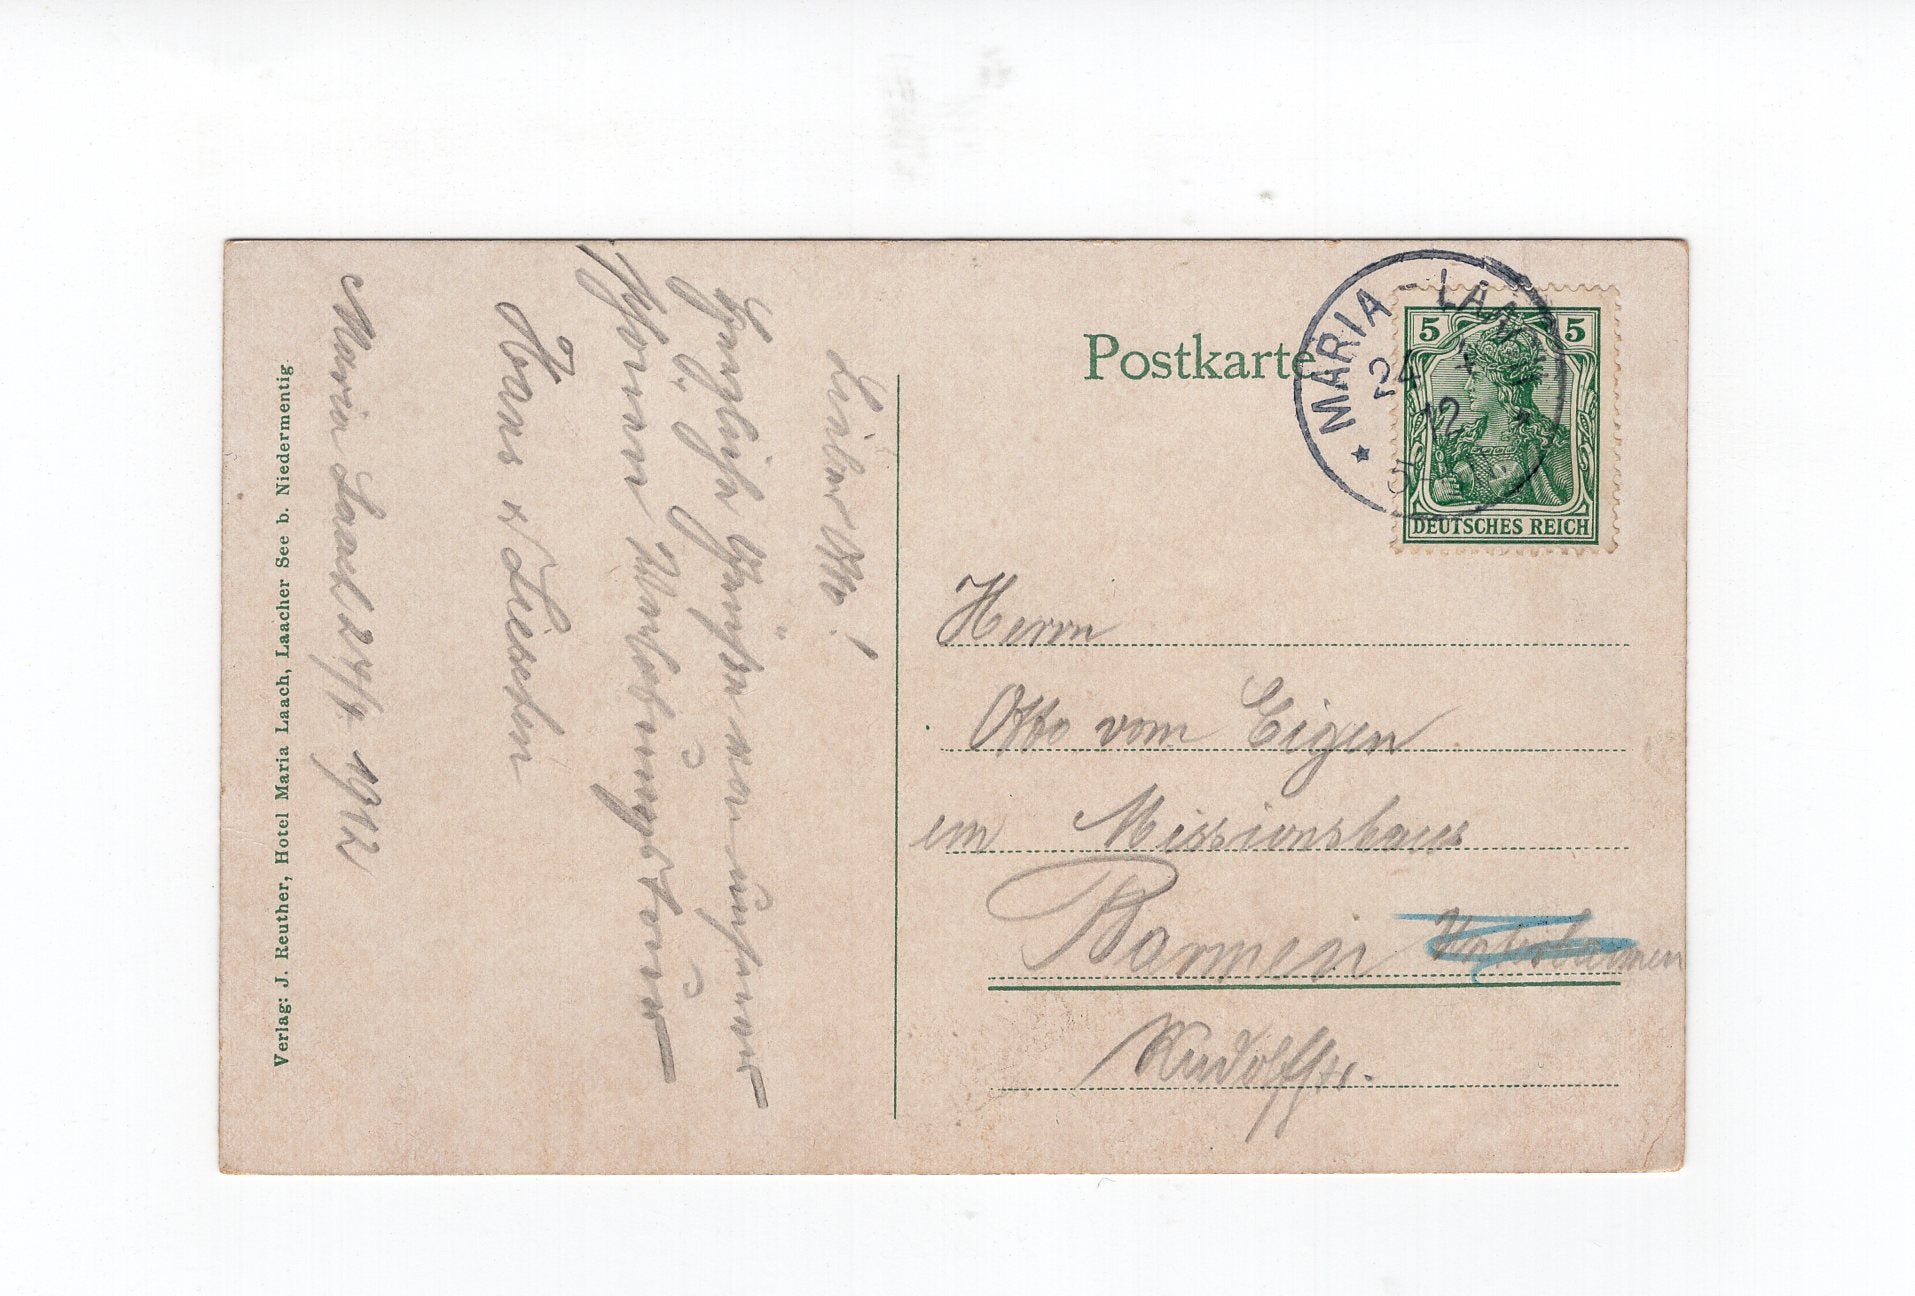 Maria Laach 24/4. 1912
Lieber Otto!
Herzliche Grüsse von unserer
schönen
Hans & Lieschen
Verlag: J. Reuther, Hotel Maria Laach, Laacher See b. Niedermentig.
Postkarte
MARIA-LAACH
24 4
12
5-
5 5
DEUTSCHES REICH
Herrn
Otto vom Eigen
im Missionshaus
Barmen Unterbarmen
Rudolfstr.